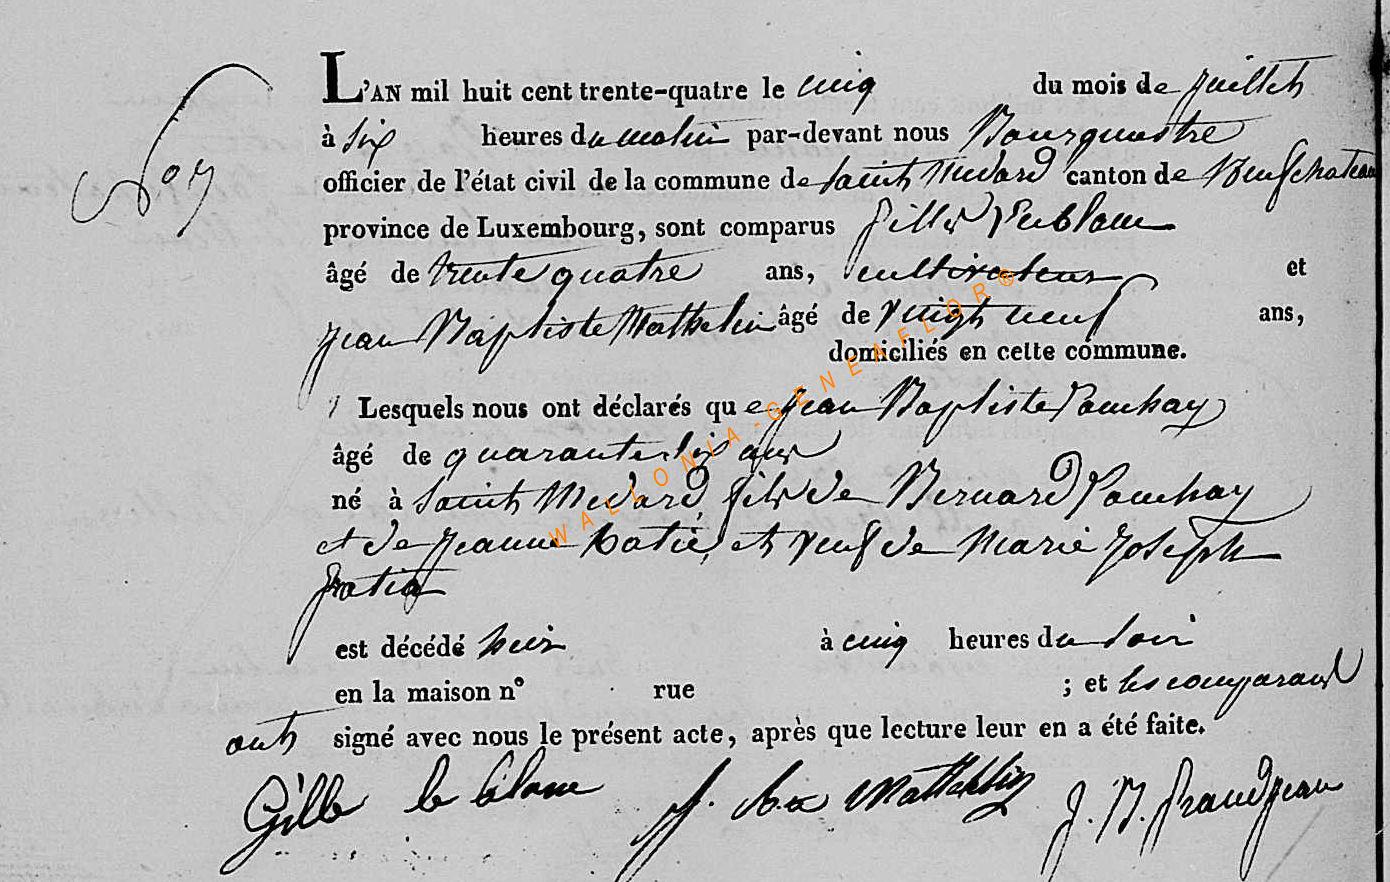 N° 7
L'AN mil huit cent trente-quatre le cinq du mois de juillet
à six heures du matin par-devant nous Bourguestre
officier de l'état civil de la commune de Saint Medard canton de Neufchateau
province de Luxembourg, sont comparus Gille Leblanc
âgé de trente quatre ans, cultivateur et
Jean Baptiste Mathelin âgé de vingt neuf ans,
domiciliés en cette commune.
Lesquels nous ont déclarés que Jean Baptiste Ponchay
âgé de quarante six ans
né à Saint Medard, fils de Bernard Ponchay
et de Jeanne et veuf de Marie Joseph
est décédé hier à cinq heures du soir
en la maison n° rue ; et les comparans
ont signé avec nous le présent acte, après que lecture leur en a été faite.
Gille le blanc J. Bte Mathelin J. B. Grandjean
WALLONIA-GENEAFLOR®